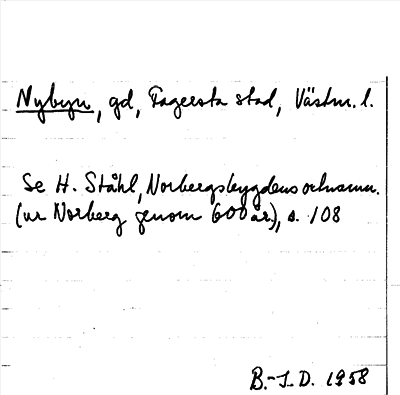 Nybyn, gd, Fagersta stad, Västm. l.
Se H. Ståhl, Norbergsbygdens ortnamn.
(ur Norberg genom 600 år), s. 108
B.-I. D. 1958